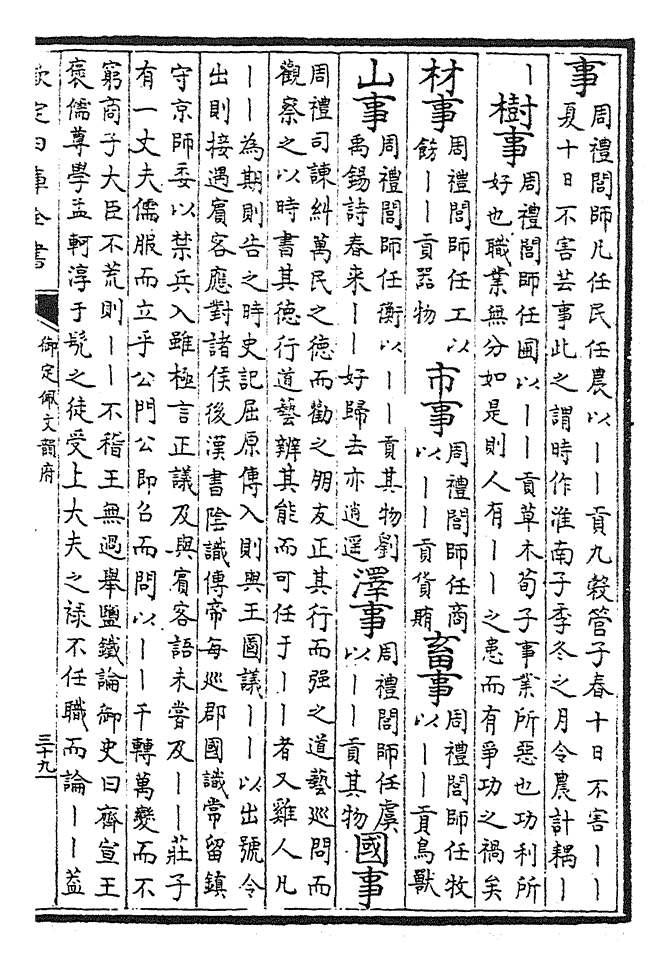 事
周禮閭師凡任民任農以丨丨貢九穀管子春十日不害丨丨
夏十日不害芸事此之謂時作淮南子季冬之月令農計耦丨
丨
樹事
周禮閭師任圃以丨丨貢草木荀子事業所惡也功利所
好也職業無分如是則人有丨丨之患而有爭功之禍矣
材事
周禮閭師任工以
飭丨丨貢器物
市事
周禮閭師任商
以丨丨貢貨賄
畜事
周禮閭師任牧
以丨丨貢鳥獸
山事
周禮閭師任衡以丨丨貢其物劉
禹錫詩春来丨丨好歸去亦逍遥
澤事
周禮閭師任虞
以丨丨貢其物
國事
周禮司諫糾萬民之德而勸之朋友正其行而强之道藝巡問而
觀察之以時書其德行道藝辨其能而可任于丨丨者又雞人凡
丨丨為期則告之時史記屈原傳入則與王圖議丨丨以出號令
出則接遇賓客應對諸侯後漢書陰識傳帝每巡郡國識常留鎮
守京師委以禁兵入雖極言正議及與賓客語未嘗及丨丨莊子
有一丈夫儒服而立乎公門公即召而問以丨丨千轉萬變而不
窮商子大臣不荒則丨丨不稽王無過舉鹽鐵論御史曰齊宣王
褒儒尊學孟軻淳于髠之徒受上大夫之禄不任職而論丨丨葢
欽定四庫全書
御定佩文韻府
三十九